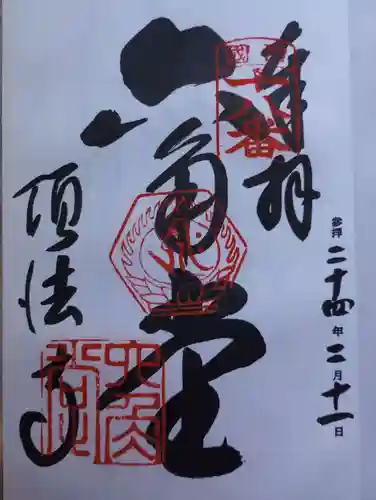 奉拝
参拝二十四年二月十一日
西国十八番
六角堂
頂法寺